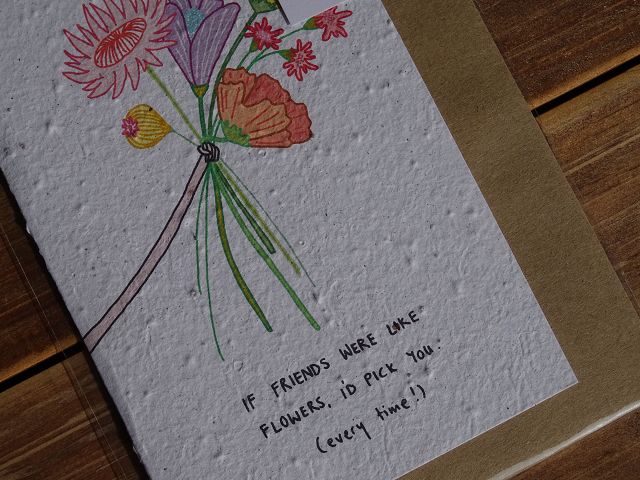 IF FRIENDS WERE LIKE
FLOWERS, I'D PICK YOU.
(every time!)